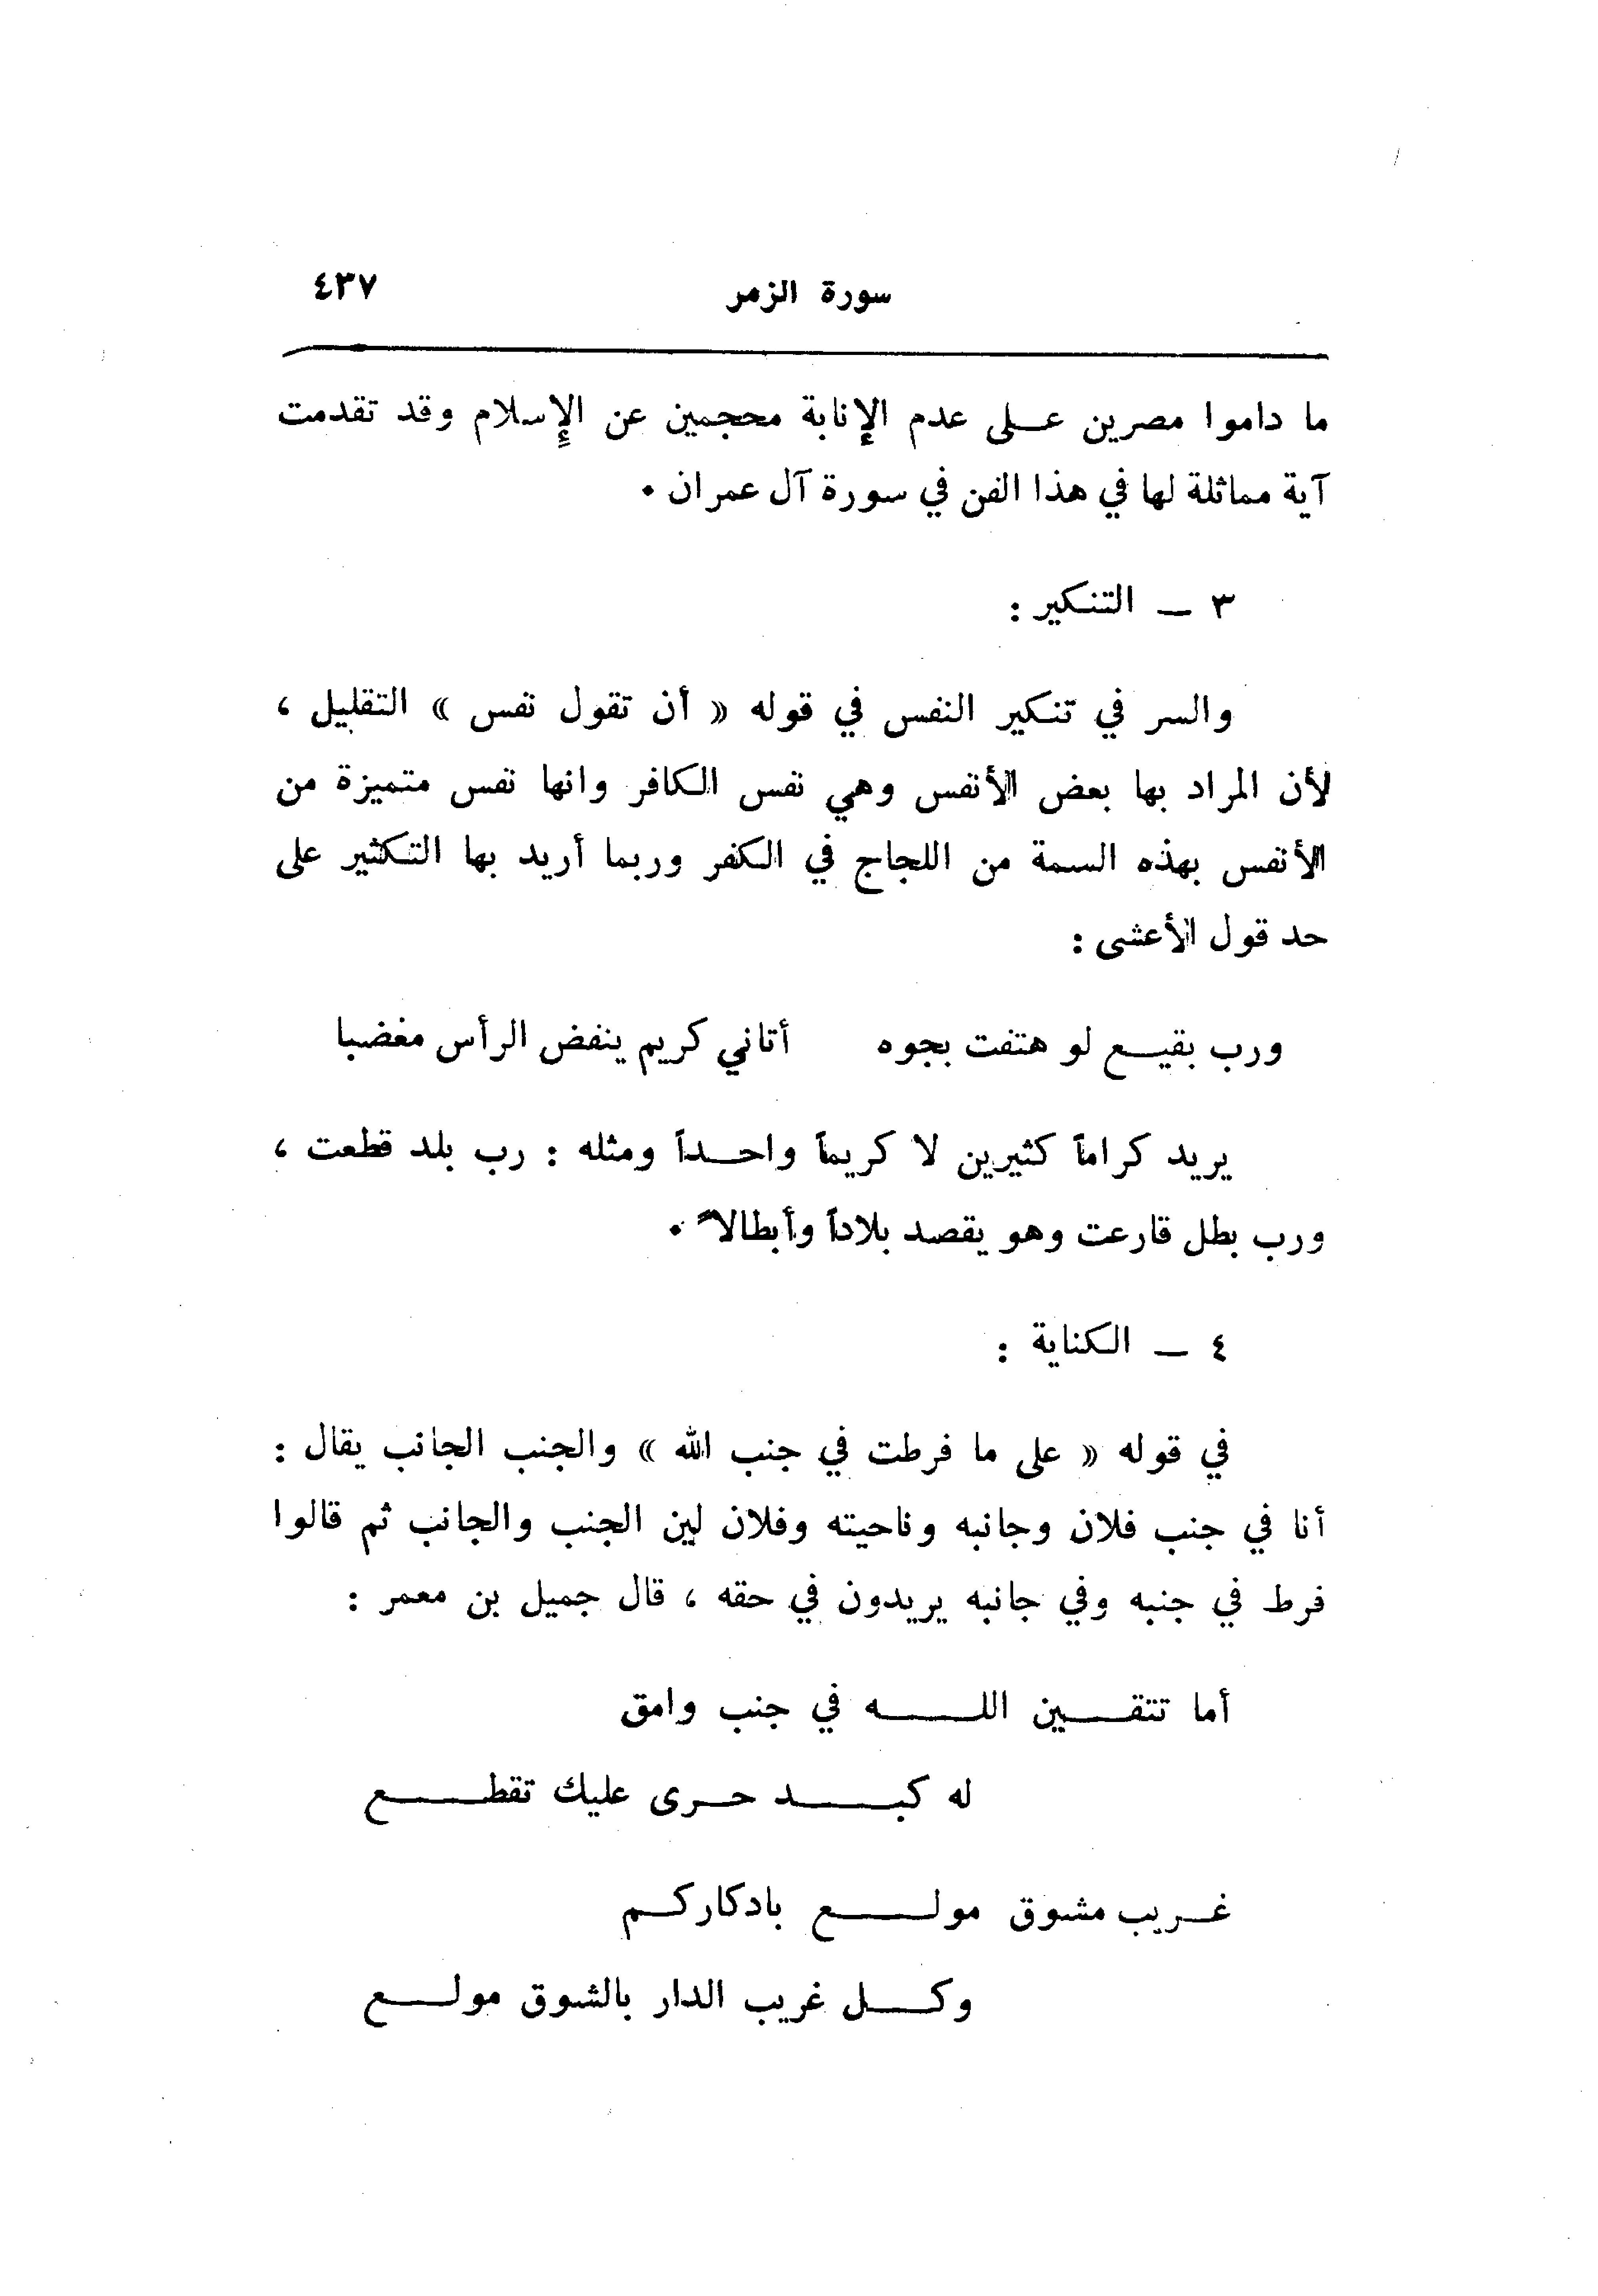 سورة الزمر ٤٣٧
ما داموا مصرين على عدم الإنابة محجمين عن الإسلام وقد تقدمت
آية مماثلة لها في هذا الفن في سورة آل عمران .
٣ ـ التنكير :
والسر في تنكير النفس في قوله « أن تقول نفس » التقليل ،
لأن المراد بها بعض الأنفس وهي نفس الكافر وانها نفس متميزة من
الأنفس بهذه السمة من اللجاج في الكفر وربما أريد بها التكثير على
حد قول الأعشى :
ورب بقيع لو هتفت بجوه أتاني كريم ينفض الرأس مغضبا
يريد كراماً كثيرين لا كريماً واحداً ومثله : رب بلد قطعت ،
ورب بطل قارعت وهو يقصد بلاداً وأبطالاً .
٤ ـ الكناية :
في قوله « على ما فرطت في جنب الله » والجنب الجانب يقال :
أنا في جنب فلان وجانبه وناحيته وفلان لين الجنب والجانب ثم قالوا
فرط في جنبه وفي جانبه يريدون في حقه ، قال جميل بن معمر :
أما تتقين الله في جنب وامق
له كبد حرى عليك تقطع
غريب مشوق مولع بادكاركم
وكل غريب الدار بالشوق مولع